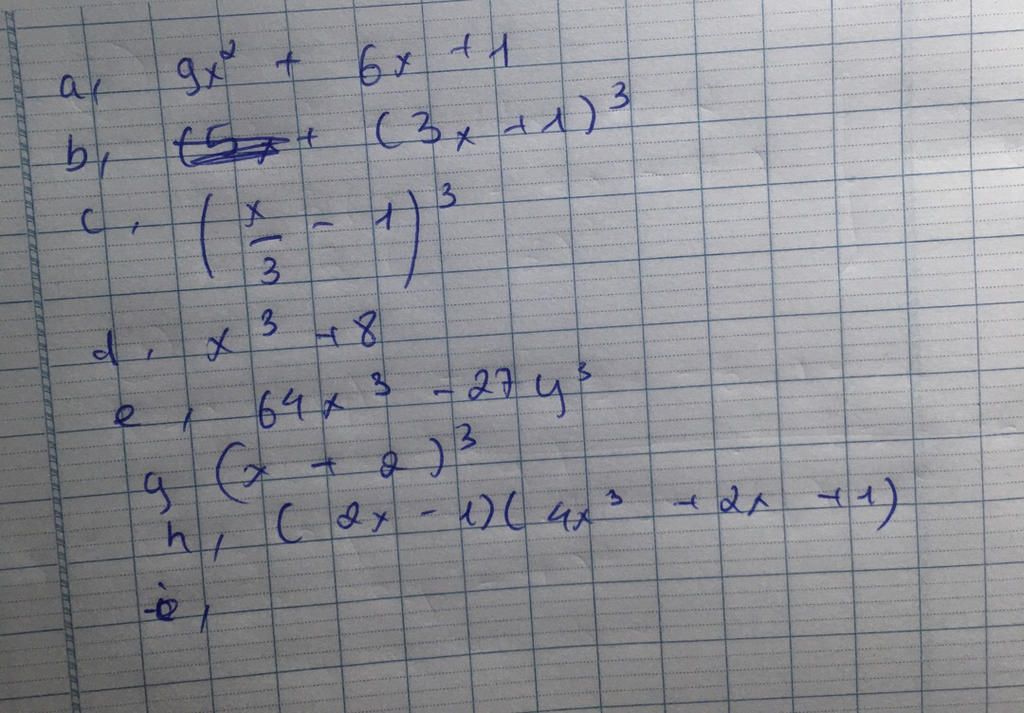 a, 9x² + 6x + 1
b, + (3x + 1)³
c, (x/3 - 1)³
d, x³ + 8
e, 64x³ - 27y³
g (x + 2)³
h, (2x - 1)(4x³ + 2x + 1)